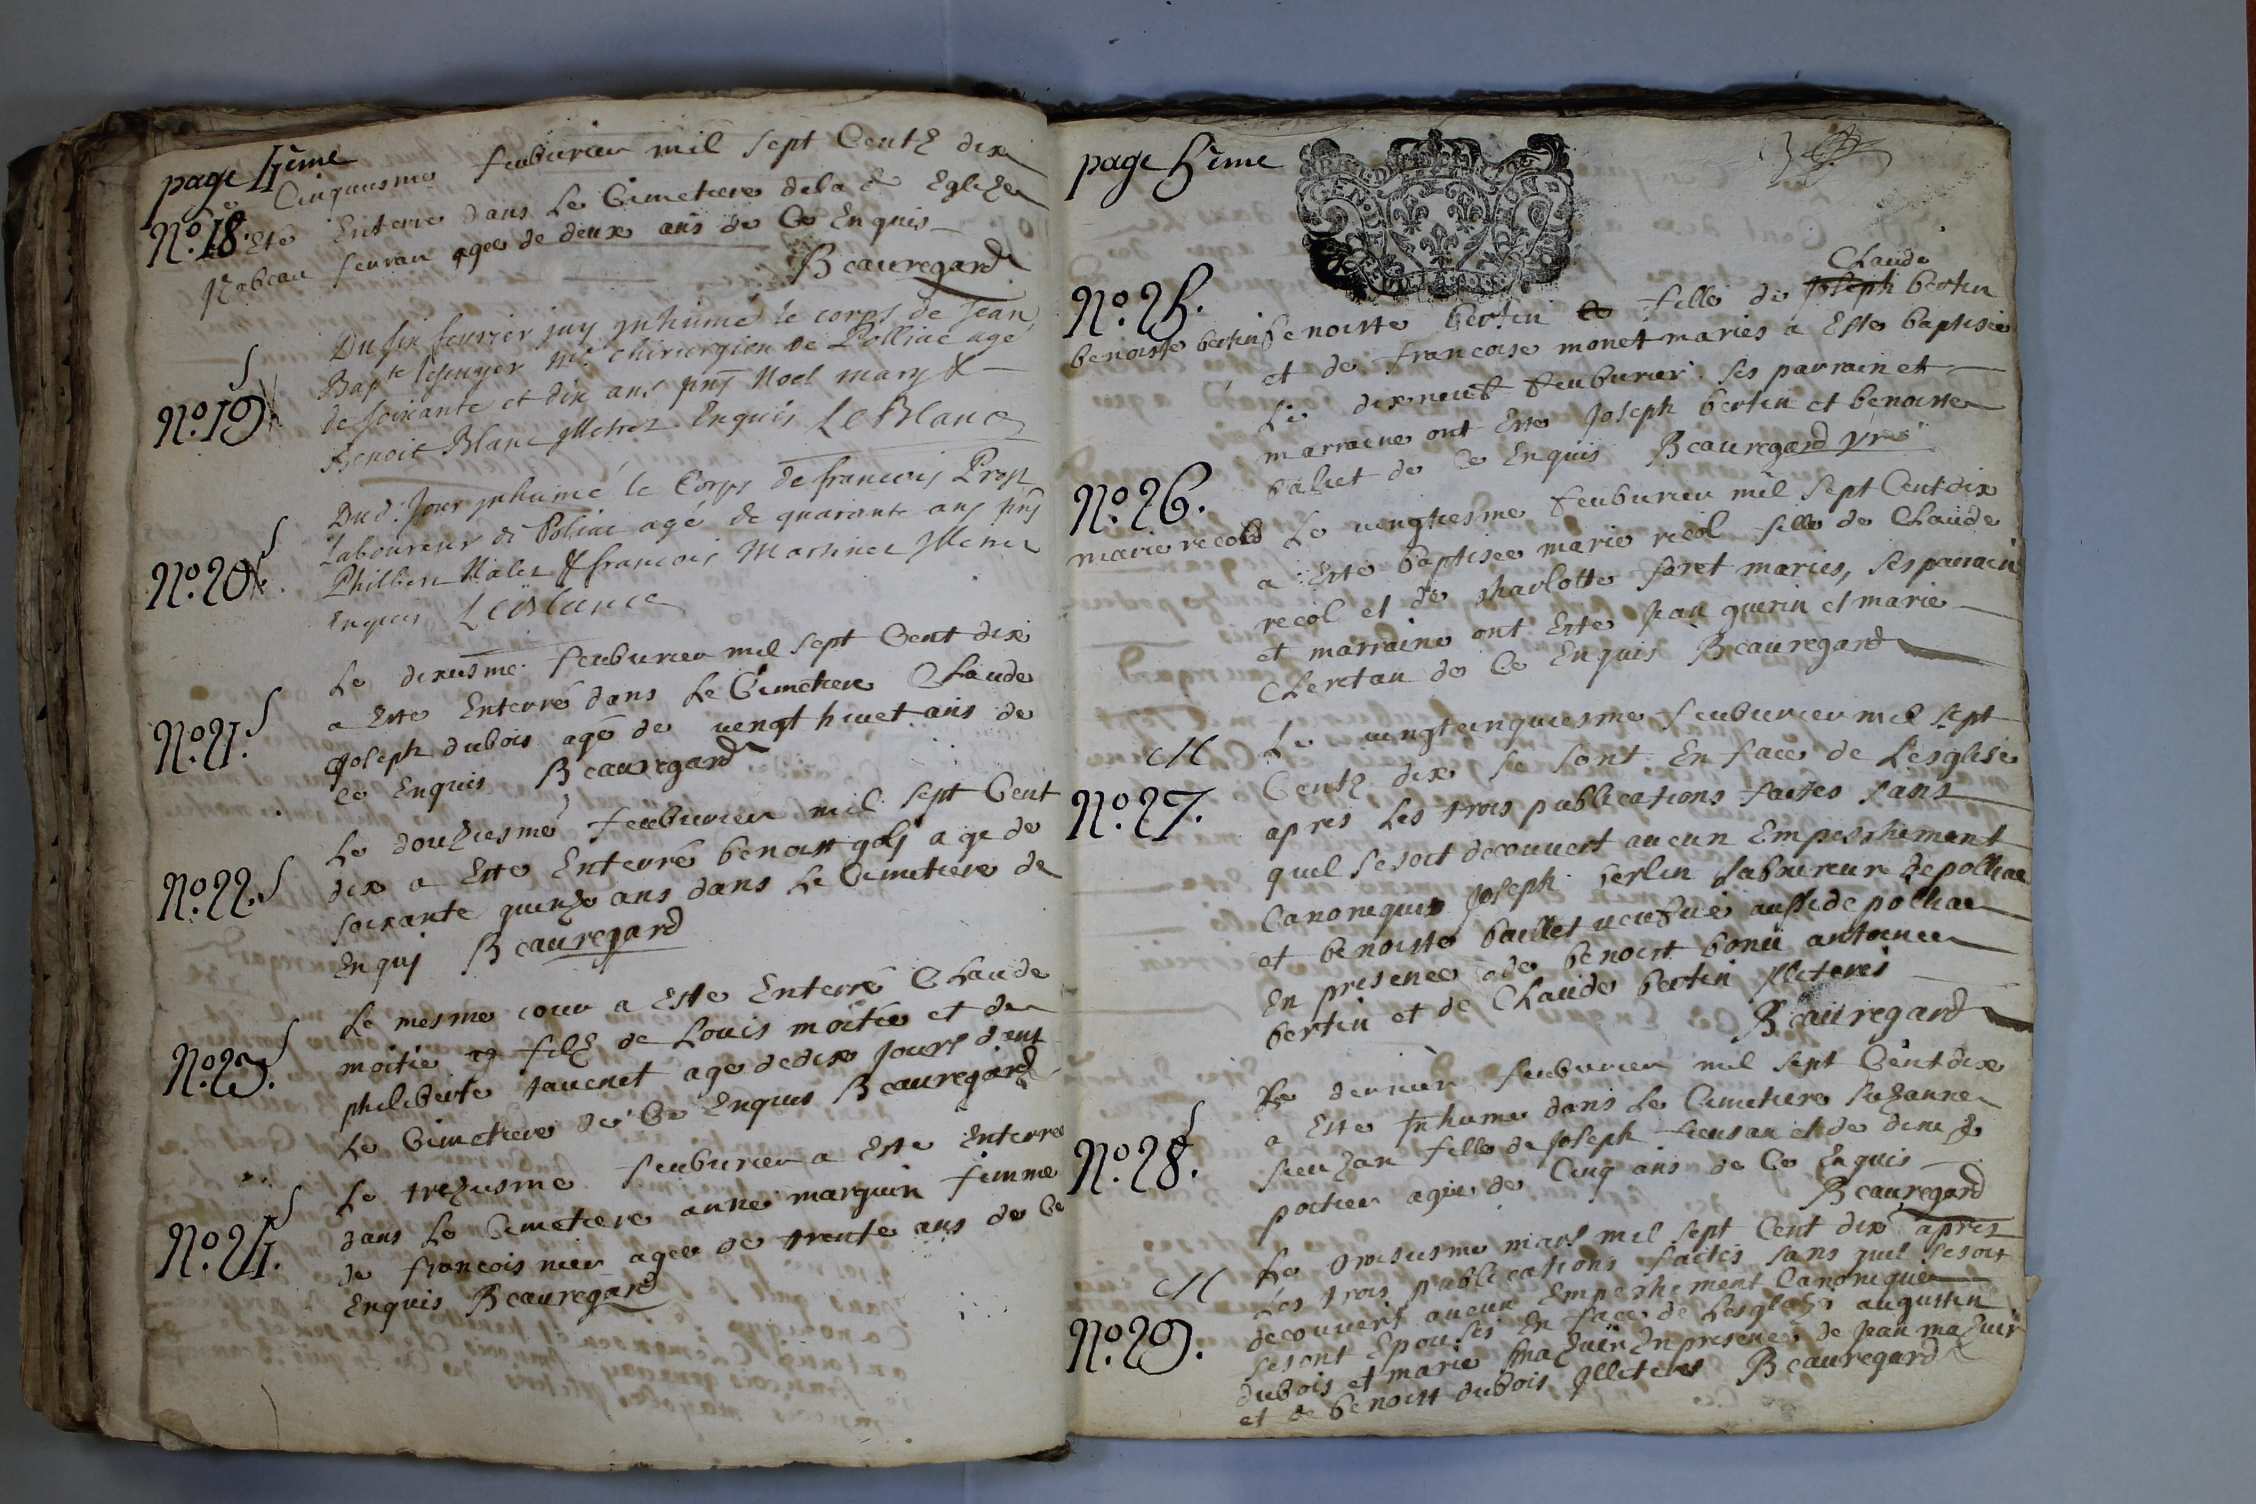 page 4ème
Cinquiesme feuburier mil sept Centz dix
No. 18. Este Enterré dans Le Cimetiere de la Eglize
feuran agee de deux ans de Ce Enquis
Beauregard
Du six fevrier jay inhumé le corps de Jean
Bapte mre chirurgien de Polliac agé
No. 19. de soixante et dix ans pnt Noel mary &
Benoit Blanc Illetrez Enquis LeBlanc
Dud. Jour inhumé le Corps de francois Prost
Laboureur de Poliac agé de quarante ans pnt
No. 20. Philibert Nalet & francois Martinet Illetrez
Enquis LeBlanc
Le dixiesme feuburier mil sept Cent dix
a Este Enterré dans Le Cimetiere Claude
No. 21. Joseph dubois agé de vengt huict ans de
ce Enquis Beauregard
Le douziesme feuburier mil sept Cent
dix a Este Enterré benoist agé de
No. 22. soixante quinze ans dans Le Cimetiere de
Enquis Beauregard
Le mesme iour a Este Enterré Claude
moitié filz de Louis moitie et de
No. 23. philiberte tavenet age de dix Jours dent
Le Cimetiere de Ce Enquis Beauregard
Le trezusme feuburier a Este Enterre
dans Le Cimetiere anne marguin femme
No. 24. de francois nier agee de trente ans de Ce
Enquis Beauregard
page 5ème
Claude
No. 25. benoiste bertin fille de Joseph bertin
benoiste bertin et de francoise monet maries a Este baptisée
Le dixneuf feuburier. ses parrain et
marraine ont Este Joseph bertin et benoiste
baliet de Ce Enquis Beauregard vre
No. 26. Le vengtiesme feuburier mil sept Cent dix
marie recol a Este baptisee marie recol fille de Claude
recol et de charlotte foret maries, ses parrain
et marraine ont Este Jean guerin et marie
de Ce Enquis Beauregard
M Le vengtcinquiesme feuburier mil sept
Centz dix se sont En face de Lesglise
No. 27. apres Les trois publications faites sans
quil se soit decouvert aucun Empeschement
Canonique Joseph berlin Laboureur de polliac
et benoiste baillet veufue aussi de polliac
En presence de benoist bonu antoine
bertin et de Claude bertin Illeteres
Beauregard
Le dernier feuburier mil sept Cent dix
a Este Inhume dans Le Cimetiere suzanne
No. 28. fille de Joseph et de
portier agee de Cinq ans de Ce Enquis
Beauregard
Le troisiesme mars mil sept Cent dix apres
M Les trois publications faites sans quil se soit
decouvert aucun Empeschement Canonique
No. 29. se sont Epousés En face de Lesglize augustin
dubois et marie mazuir En presence de Jean mazuir
et de benoist dubois Illeteres Beauregard